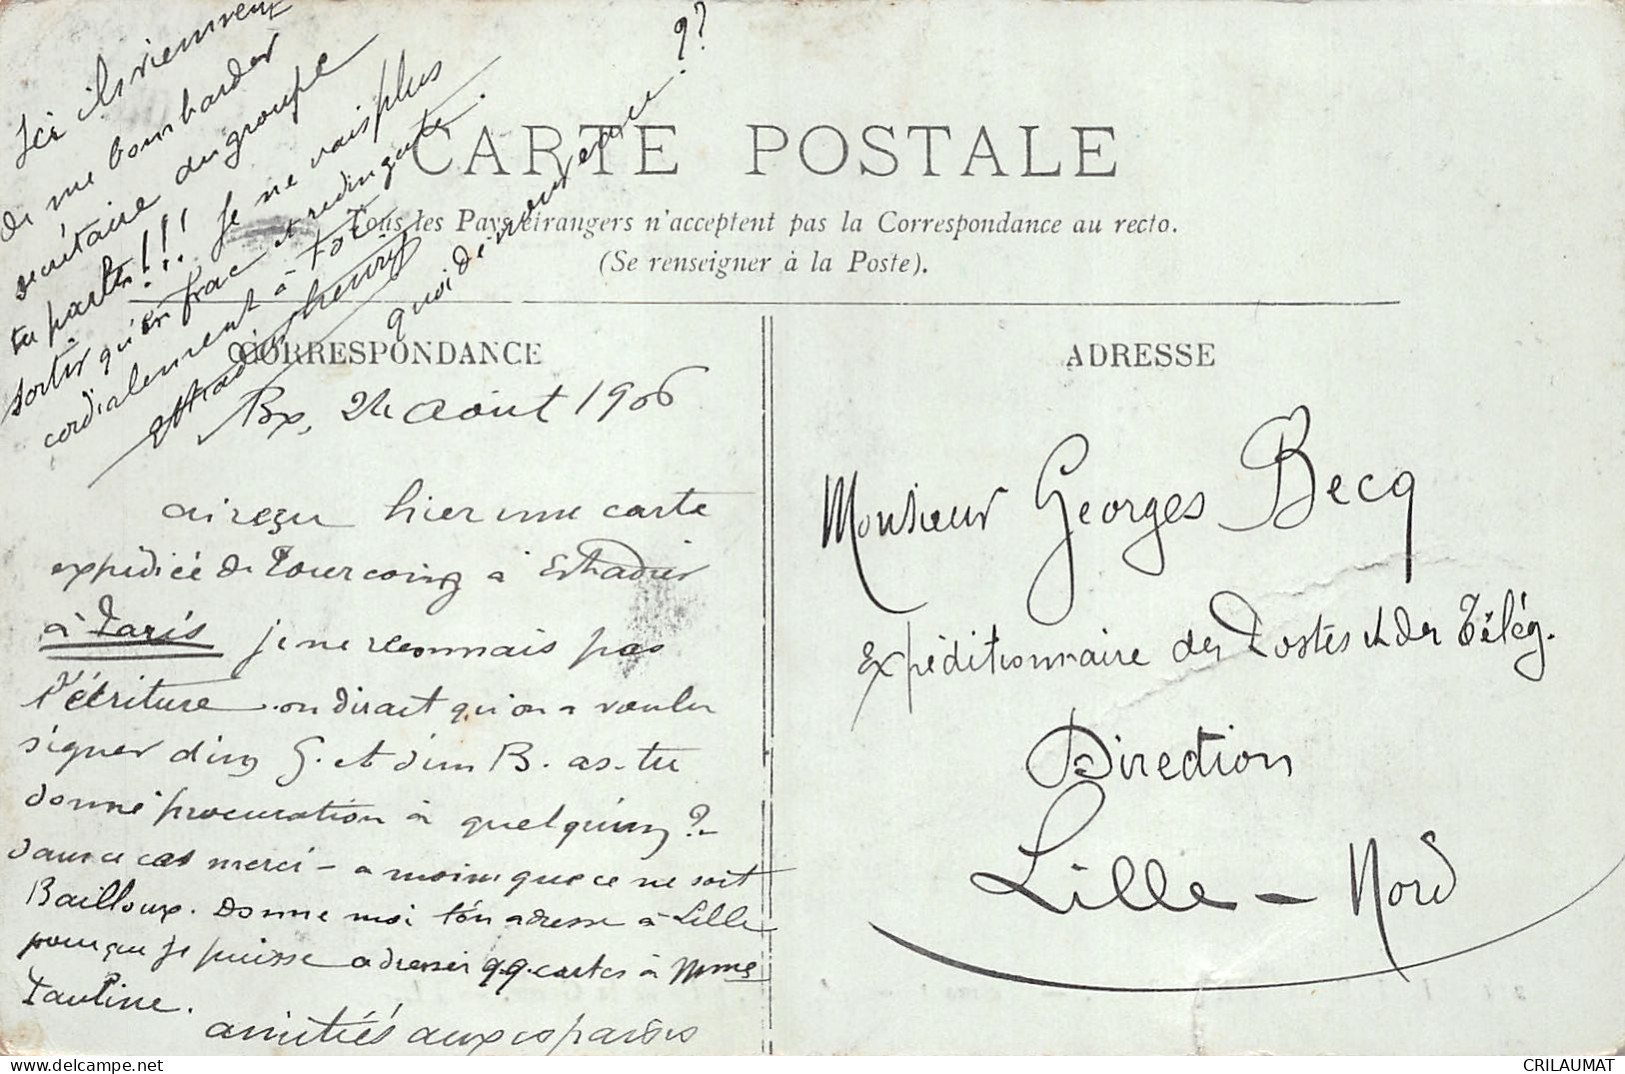 Ici ils viennent
de me bombarder
secrétaire du groupe
tu parles!!! Je ne vais plus
sortir qu'en frac et redingote.
cordialement à toi.
quoi de neuf ??
CARTE POSTALE
Tous les Pays étrangers n'acceptent pas la Correspondance au recto.
(Se renseigner à la Poste).
CORRESPONDANCE
Bx, 24 Août 1906
ai reçu hier une carte
expédiée de Tourcoing à Estradier
à Paris je ne reconnais pas
l'écriture. on dirait qu'on a voulu
signer d'un G. et d'un B. as-tu
donné procuration à quelqu'un ?
dans ce cas merci - a moins que ce ne soit
Bailloux. Donne moi ton adresse à Lille
pour que je puisse adresser qq. cartes à Mme
Pauline.
amitiés aux
ADRESSE
Monsieur Georges Becq
Expéditionnaire des Postes et des Télég.
Direction
Lille - Nord
CRILAUMAT